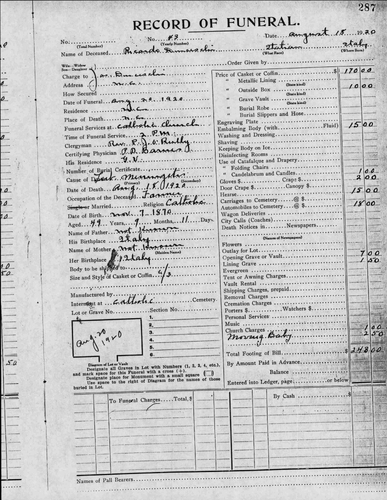 287
RECORD OF FUNERAL.
No. No. 89 Date August 18 1920
(Total Number) (Yearly Number)
Name of Deceased Ricardo Italian Italy
Charge to Order Given by
Address Price of Casket or Coffin $ 170 00
" Metallic Lining
Date of Funeral Aug 20 1920 " Outside Box 10 00
" Grave Vault
Place of Death " Burial Robe
Funeral Services at Catholic Church " Burial Slippers and Hose
Time of Funeral Service 2 P.M. Engraving Plate
Clergyman Rev. P.J. O'Reilly Embalming Body (with Fluid) 15 00
Certifying Physician Washing and Dressing
His Residence G.V. Shaving
Number of Burial Certificate Keeping Body on Ice
Cause of Death Meningitis Disinfecting Rooms
Date of Death Aug 18 1920 Use of Catafalque and Drapery
Occupation of the Deceased " Folding Chairs
Married Religion Catholic " Candelabrum and Candles 1 00
Date of Birth Nov. 7. 1870 Gloves $ Crape $ 2 00
Aged 49 Years 9 Months 11 Days Door Crape $
Name of Father not known Hearse 15 00
His Birthplace Italy Carriages to Cemetery @
Name of Mother not known Automobiles to Cemetery @ 18 00
Her Birthplace Italy Wagon Deliveries
Body to be shipped to City Calls (Coaches)
Size and Style of Casket or Coffin 6/3 Death Notices in Newspapers
Flowers
Manufactured by Outlay for Lot
Interment at Catholic Cemetery Opening Grave or Vault 7 00
Lot or Grave No. Section No. Lining Grave 1 50
Aug 20 1920 Evergreen
1. Tent or Awning Charges
2. Vault Rental
3. Shipping Charges, prepaid
4. Removal Charges
5. Cremation Charges
6. Porters $ Watchers $
Personal Services
Music
Church Charges
Moving Body
Diagram of Lot or Vault
Designate all Graves in Lot with Numbers (1, 2, 3, 4, etc.)
and mark space for this Funeral with a cross (+).
Designate place for Monument with a small square
Use space to the right of Diagram for the names of those
buried in Lot.
Total Footing of Bill $ 248 00
By Amount Paid in Advance
Balance
Entered into Ledger, page or below.
To Funeral Charges Total $ By Cash
Names of Pall Bearers